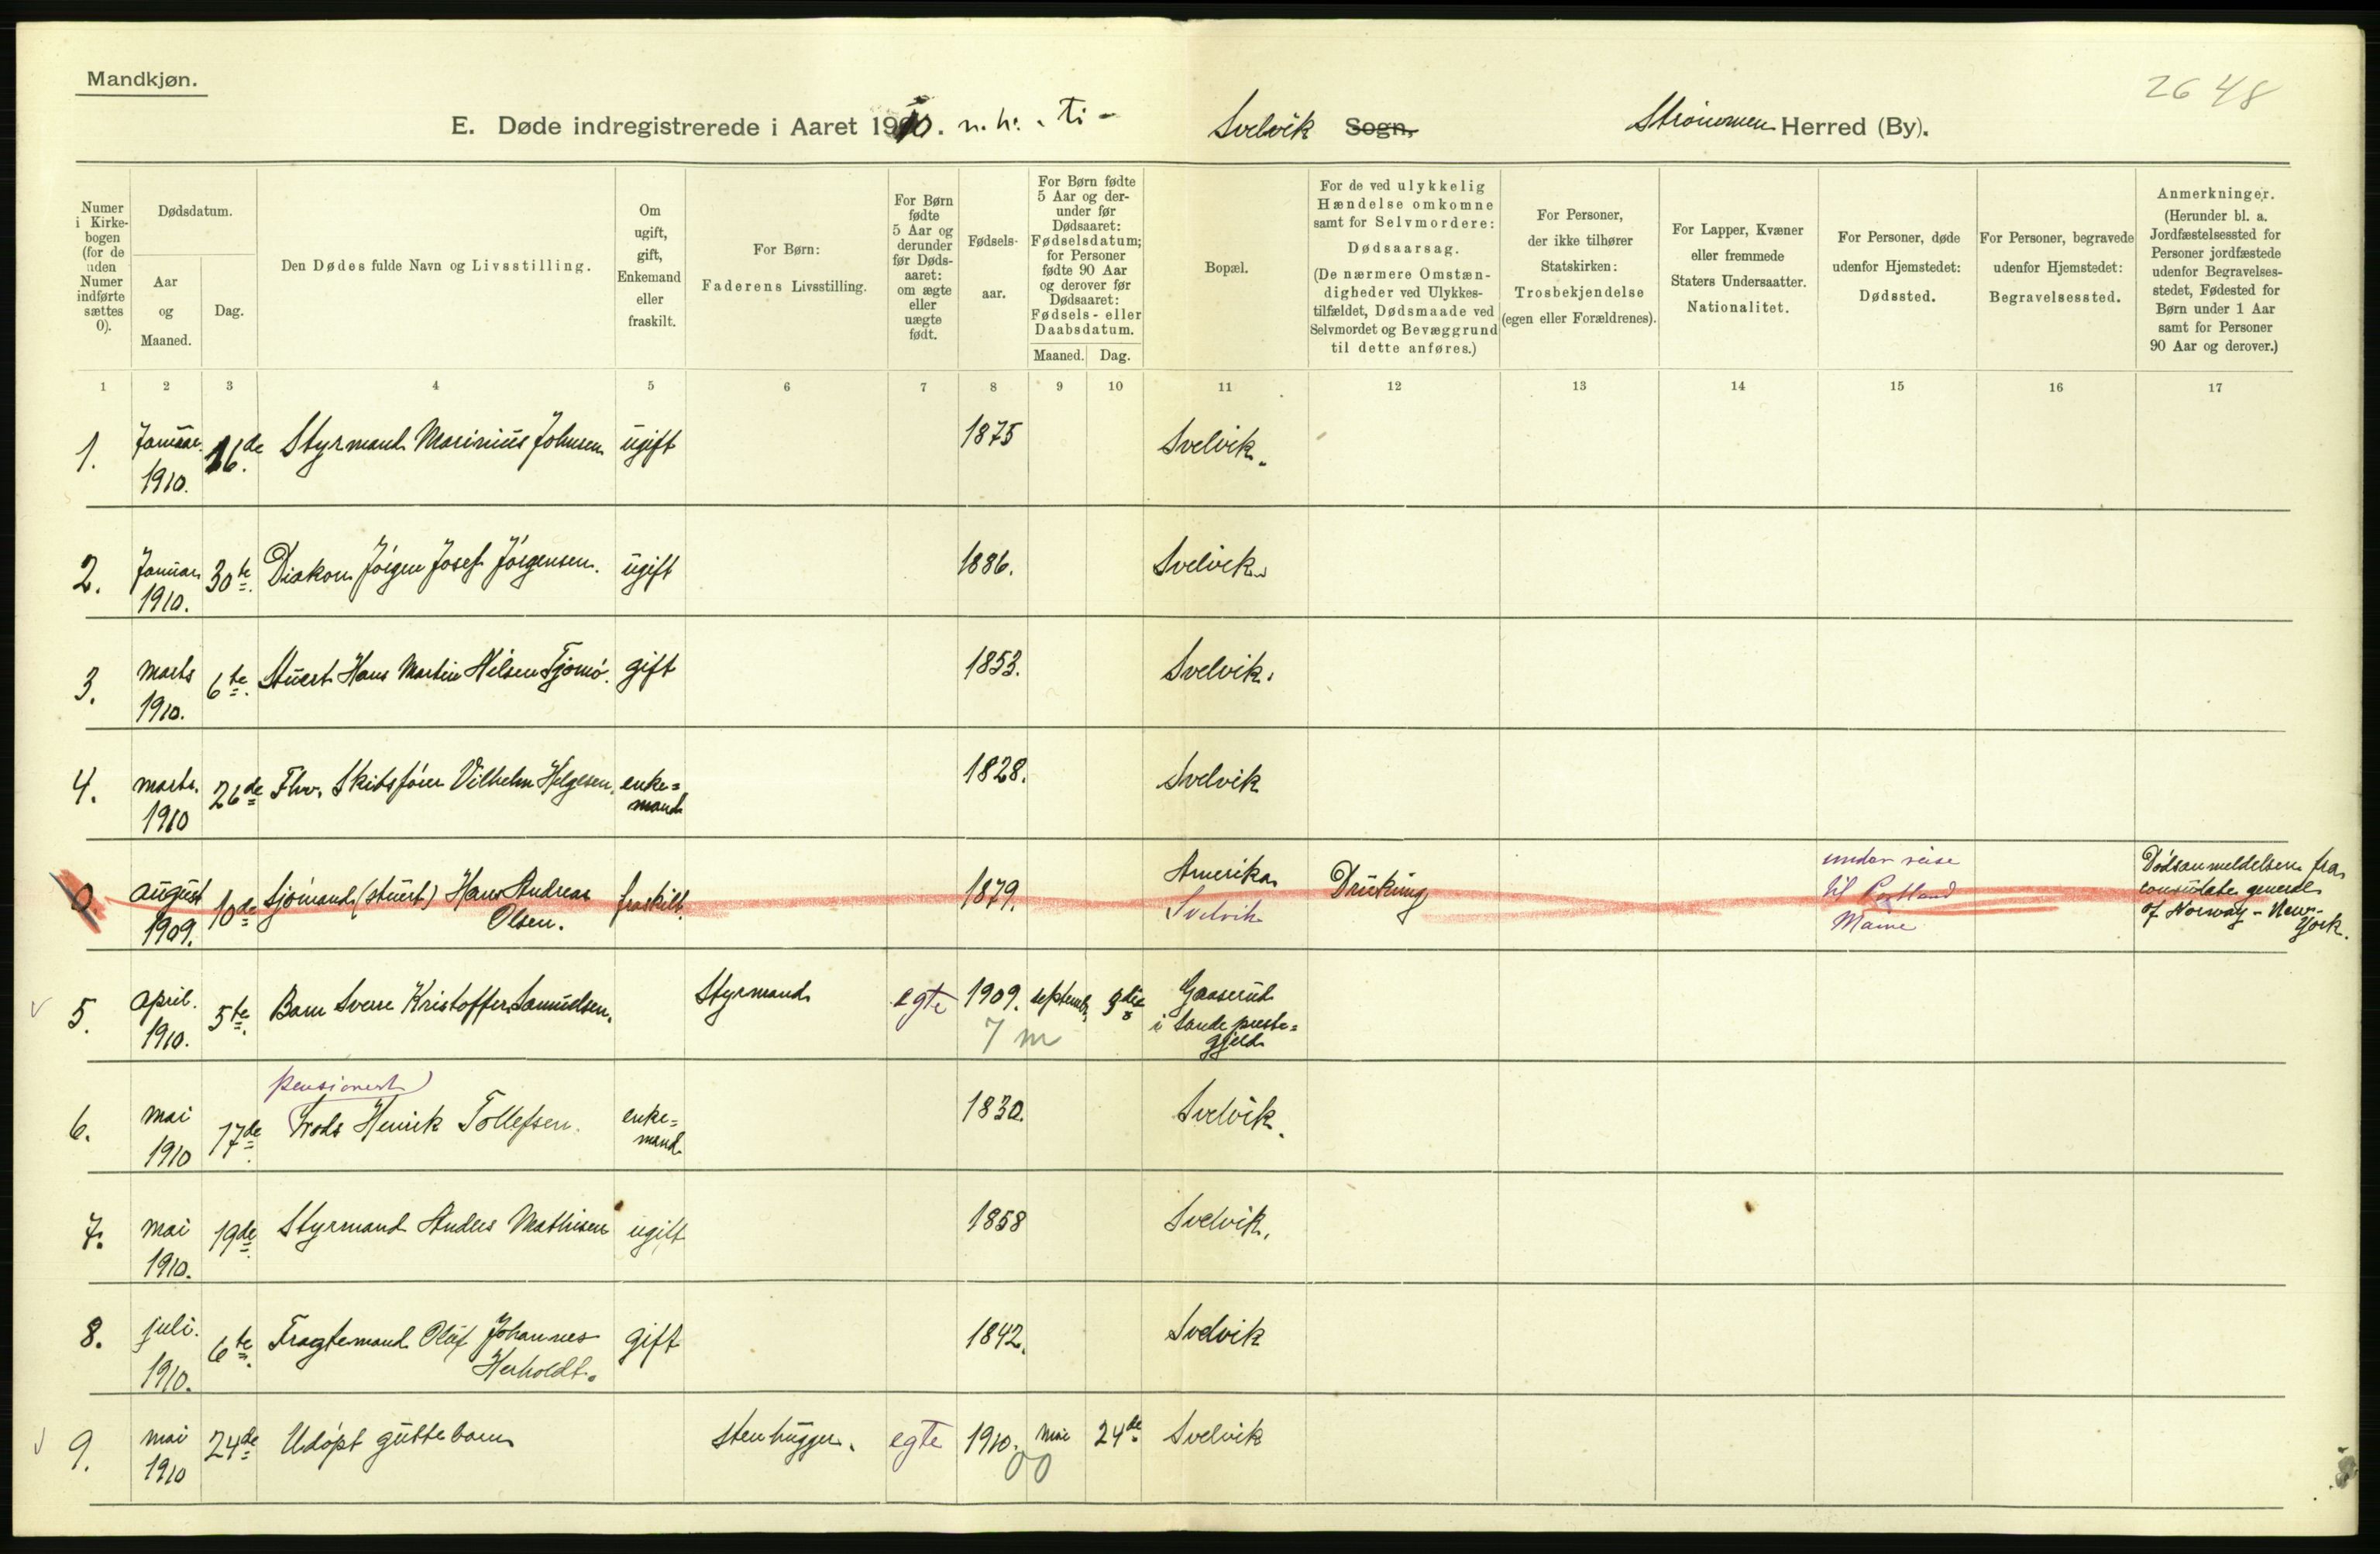 Mandkjøn.
2648
E. Døde indregistrerede i Aaret 1910. n. h. - ti - Svelvik Sogn. Strømmen Herred (By).
Numer i Kirkebogen (for de uden Numer indførte sættes 0).
Dødsdatum.
Aar og Maaned.
Dag.
Den Dødes fulde Navn og Livsstilling.
Om ugift, gift, Enkemand eller fraskilt.
For Børn: Faderens Livsstilling.
For Børn fødte 5 Aar og derunder før Dødsaaret: om ægte eller uægte født.
Fødselsaar.
For Børn fødte 5 Aar og derunder før Dødsaaret: Fødselsdatum; for Personer fødte 90 Aar og derover før Dødsaaret: Fødsels- eller Daabsdatum.
Maaned. Dag.
Bopæl.
For de ved ulykkelig Hændelse omkomne samt for Selvmordere: Dødsaarsag. (De nærmere Omstændigheder ved Ulykkestilfældet, Dødsmaade ved Selvmordet og Bevæggrund til dette anføres.)
For Personer, der ikke tilhører Statskirken: Trosbekjendelse (egen eller Forældrenes).
For Lapper, Kvæner eller fremmede Staters Undersaatter. Nationalitet.
For Personer, døde udenfor Hjemstedet: Dødssted.
For Personer, begravede udenfor Hjemstedet: Begravelsessted.
Anmerkninger. (Herunder bl. a. Jordfæstelsessted for Personer jordfæstede udenfor Begravelsesstedet, Fødested for Børn under 1 Aar samt for Personer 90 Aar og derover.)
1 2 3 4 5 6 7 8 9 10 11 12 13 14 15 16 17
1. Januar 1910. 16de Styrmand Marinius Johnsen ugift 1875 Svelvik.
2. Januar 1910. 30te Diakon Jörgen Josef Jörgensen. ugift 1886. Svelvik
3. marts 1910. 6te Stuert Hans Martin Nilsen Tjømø. gift 1853. Svelvik.
4. marts. 1910 26de Fhv. Skibsförer Vilhelm Helgesen. enke=mand 1828. Svelvik
0 august 1909. 10de Sjömand (stuert) Hans Andreas Olsen. fraskilt. 1879. Amerika Svelvik Drukning under reise til Portland Maine Dödsanmeldelse fra consulate general of Norway - New-York.
5. april. 1910. 5te Barn Sverre Kristoffer Samuelsen. Styrmand egte 1909. septembr. 9de Gaaserud i Sande preste=gjeld
7 m
pensionert
6. mai 1910 17de Lods Henrik Tollefsen. enke=mand 1830. Svelvik.
7. mai 1910. 19de Styrmand Anders Mathisen ugift 1858 Svelvik.
8. juli. 1910. 6te Fragtemand Oluf Johannes Herholdt. gift 1842. Svelvik
9. mai 1910 24de Udöpt guttebarn Stenhugger. egte 1910. mai 24de Svelvik
00